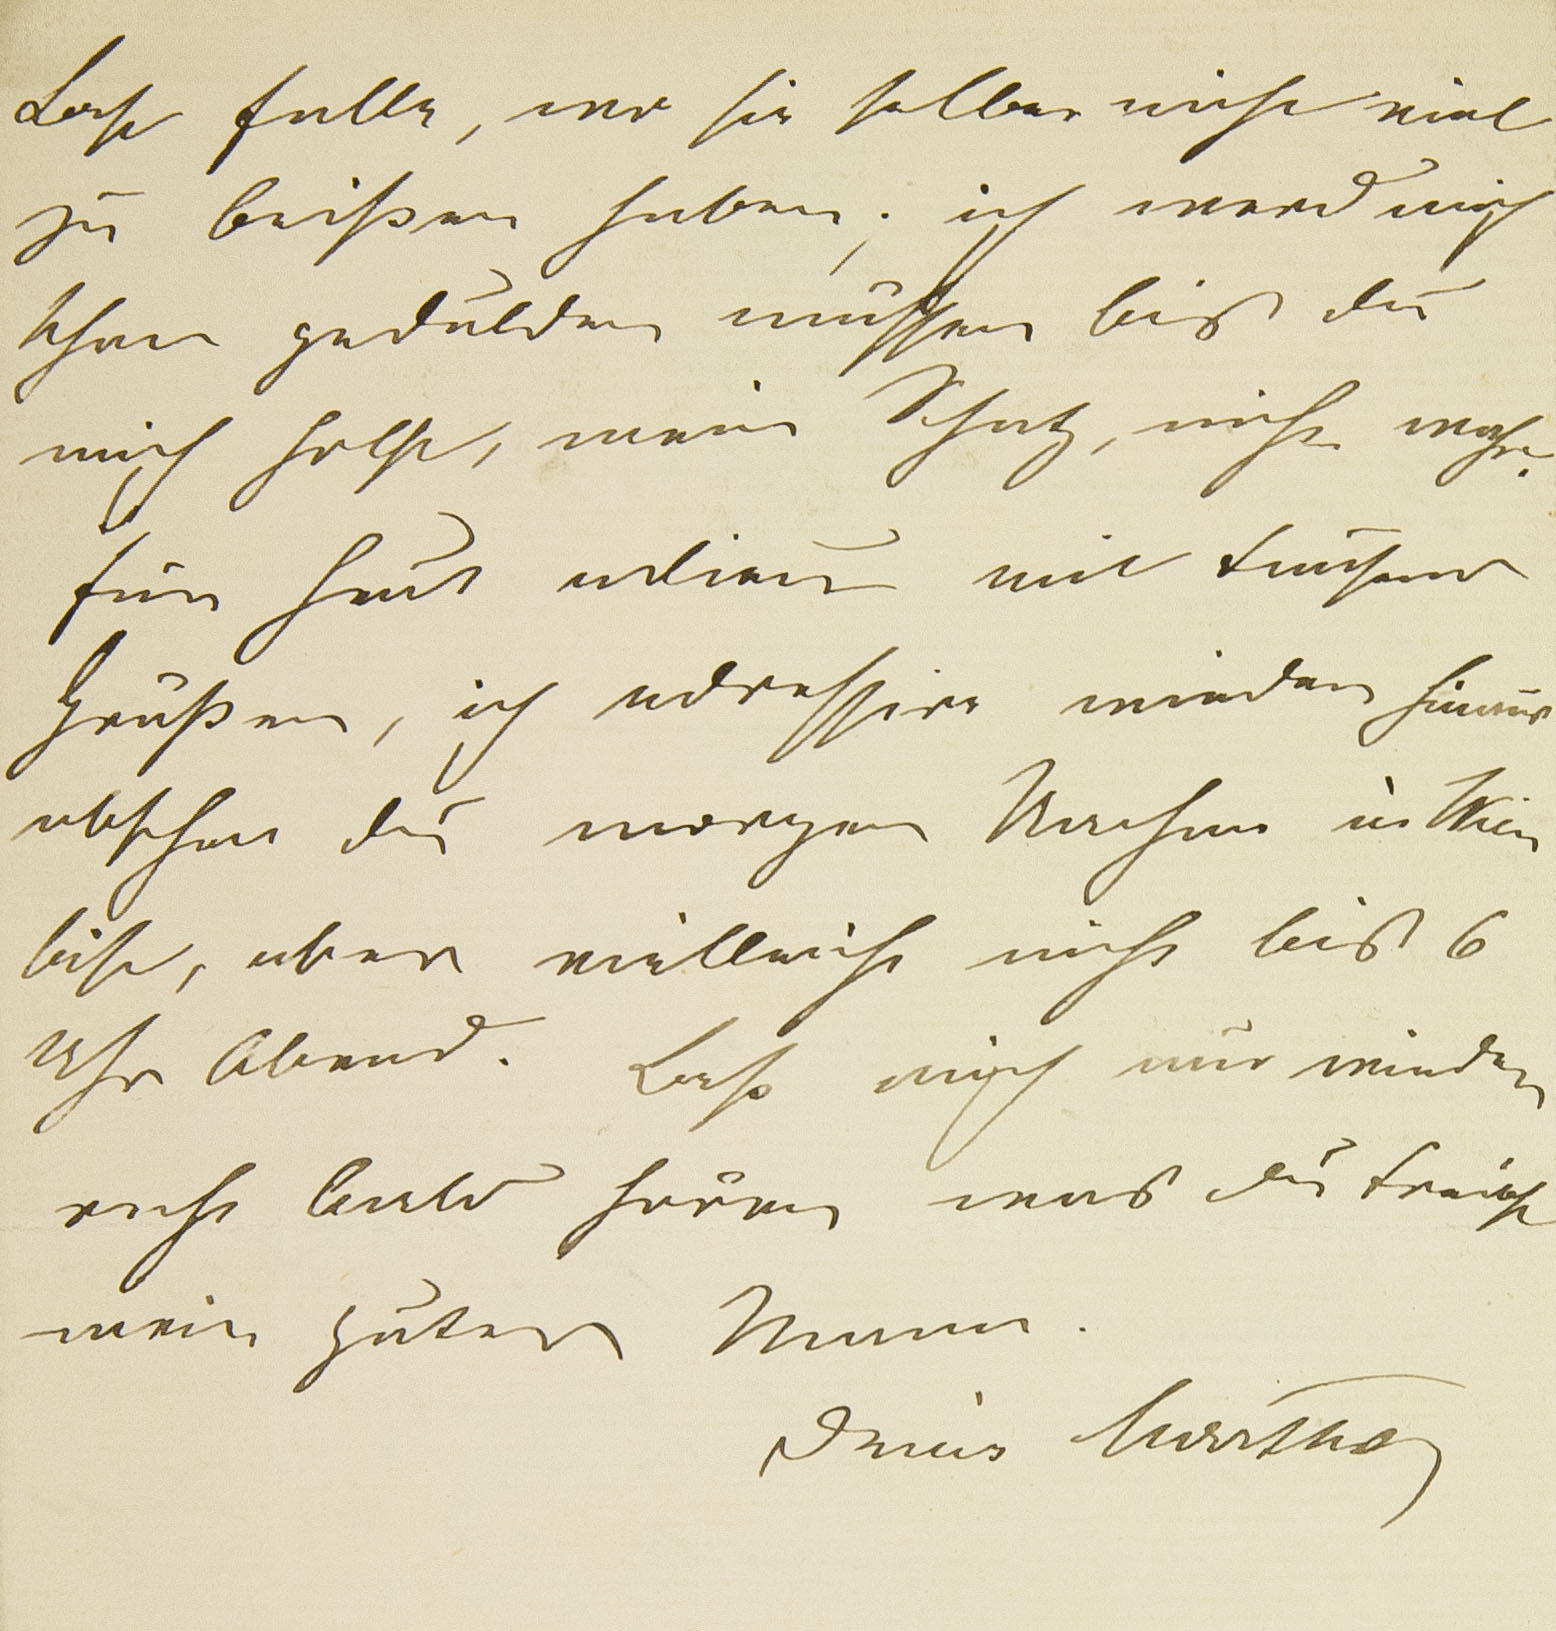 Last falle, wo sie selber nicht viel
zu beißen haben; ich werd mich
schon gedulden müssen biß du
mich holst, mein Schatz, nicht wahr.
für heut adieu mit tausend
Grüßen, ich adressire wieder hinaus
obschon du morgen Nachm in Wien
bist, aber vielleicht nicht biß 6
Uhr Abend. Laß mich nur wieder
recht bald hören was du treibst
mein guter Mann.
Deine Martha